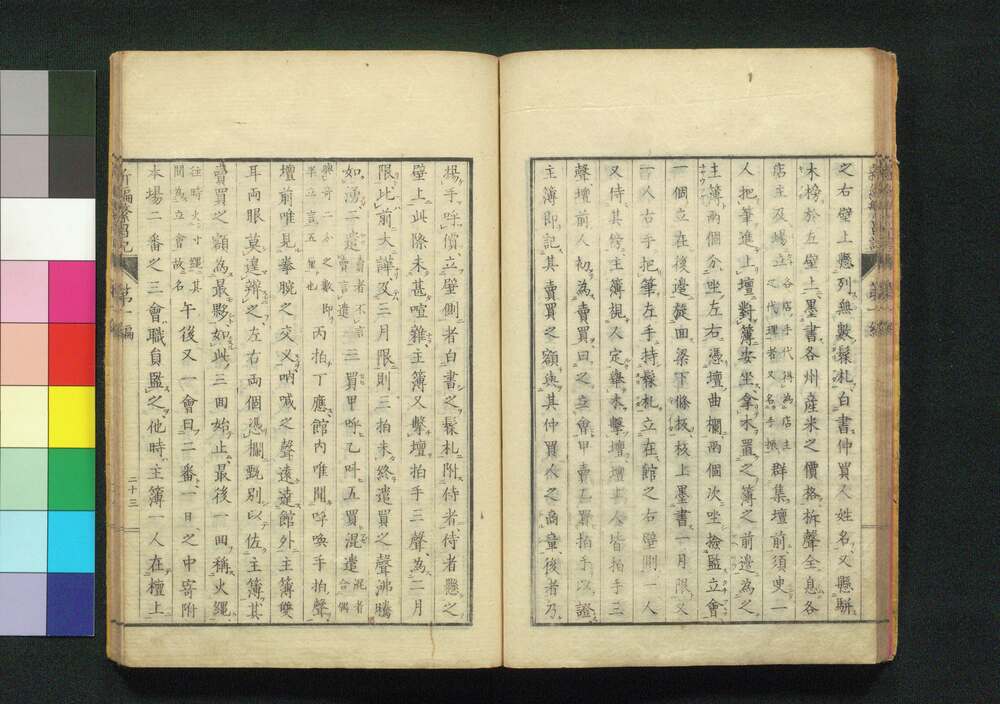 之右壁上懸列無數髹札白書仲買人姓名又懸駢
木榜於左壁上墨書各州産米之價格柝聲全息各
店主及場立各店手代稱為店主之代理者又名手振群集壇前須臾一
人把筆進上壇對簿安坐拿木置之簿之前邊為之
主簿兩個分坐左右憑壇曲欄兩個次坐撿監立會
一個立在後邊旋面梁下條板板上墨書一月限又
一人右手把筆左手持髹札立在館之右壁側一人
又侍其傍主簿視人定舉木擊壇壇前人皆拍手三
聲壇前人初為賣買曰之立會甲賣乙買拍手以證
主簿即記其賣買之額與其仲買人之商量後者乃
新編繁昌記 第一編
二十三
揚手呼價立壁側者白書之髹札附侍者侍者懸之
壁上此際未甚喧雜主簿又擊壇拍手三聲為二月
限比前大譁又三月限則三拍未終遣買之聲沸騰
如湧二遣賣者不言賣言遣三買甲呼乙叫五買混遣混者合偶
丙拍丁應館内唯聞呼喚手拍聲
壇前唯見拳腕之交叉吶喊之聲遠達館外主簿雙
耳両眼莫遑辨之左右両個憑欄甄別以佐主簿其
賣買之額為最夥如此三回始止最後一回稱火繩
往時火寸繩其間為立會故名午後又一會曰二番一日之中寄附
本場二番之三會職員監之他時主簿一人在檀上